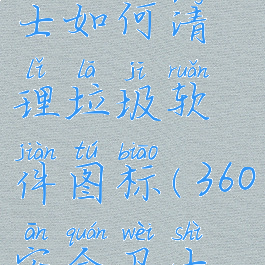 士如何清
lǐ lā jī ruǎn
理垃圾软
jiàn tú biāo
件图标(360
ān quán wèi shì
安全卫士